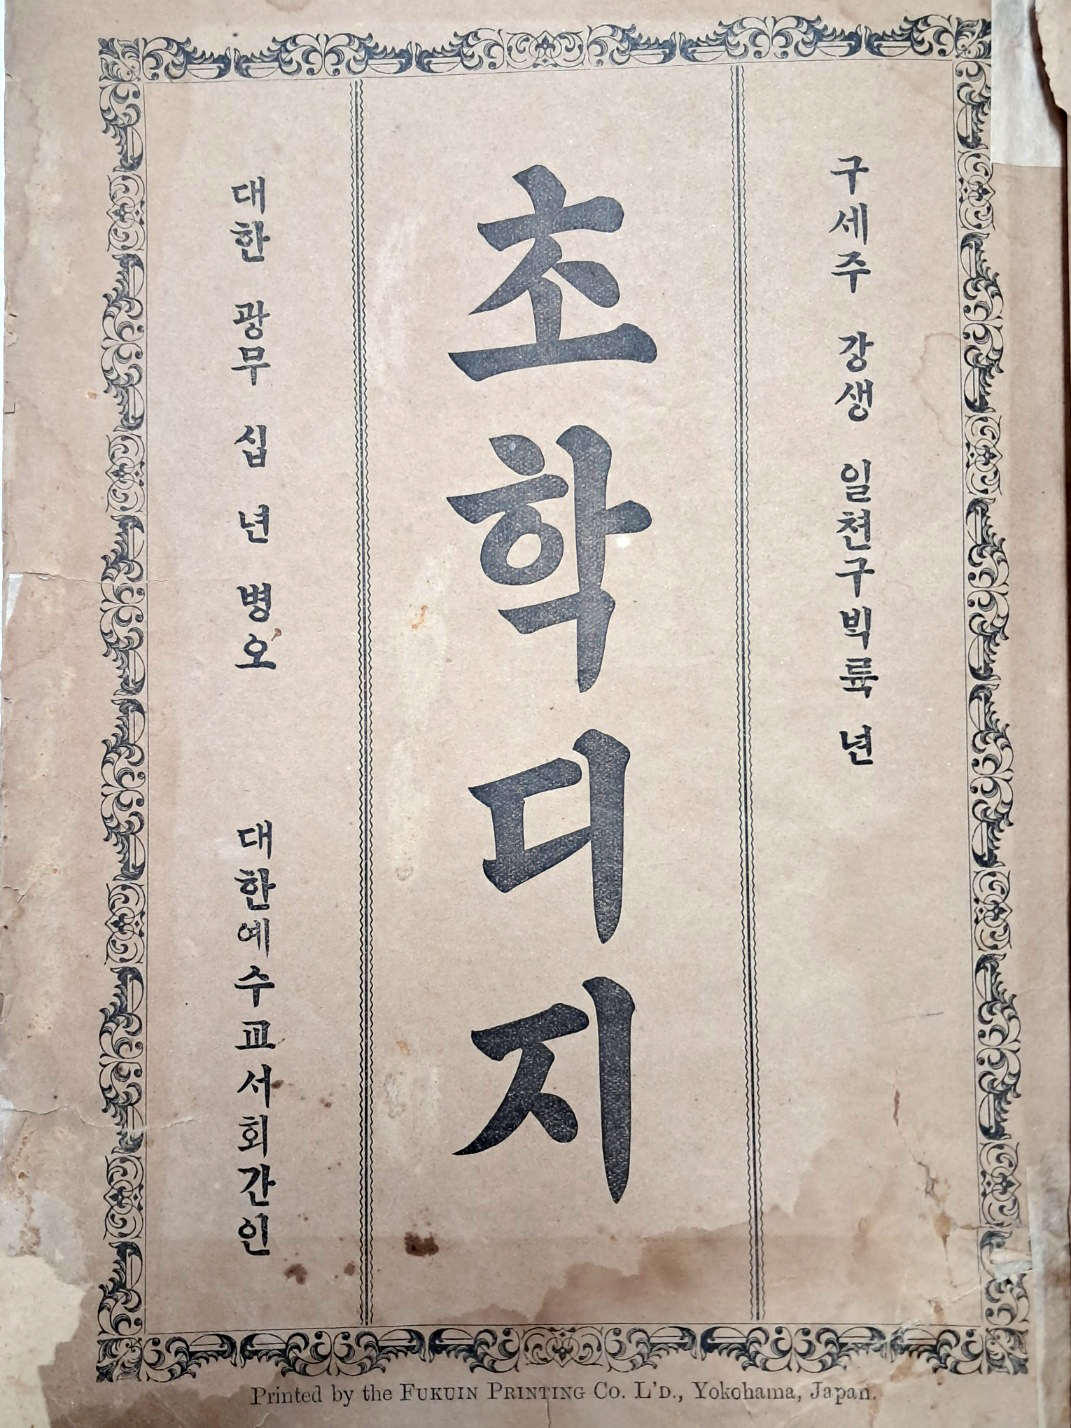 구세주 강생 일쳔구빅륙 년
초학디지
대한 광무 십 년 병오
대한예수교서회간인
Printed by the FUKUIN PRINTING CO. L'D., Yokohama, Japan.